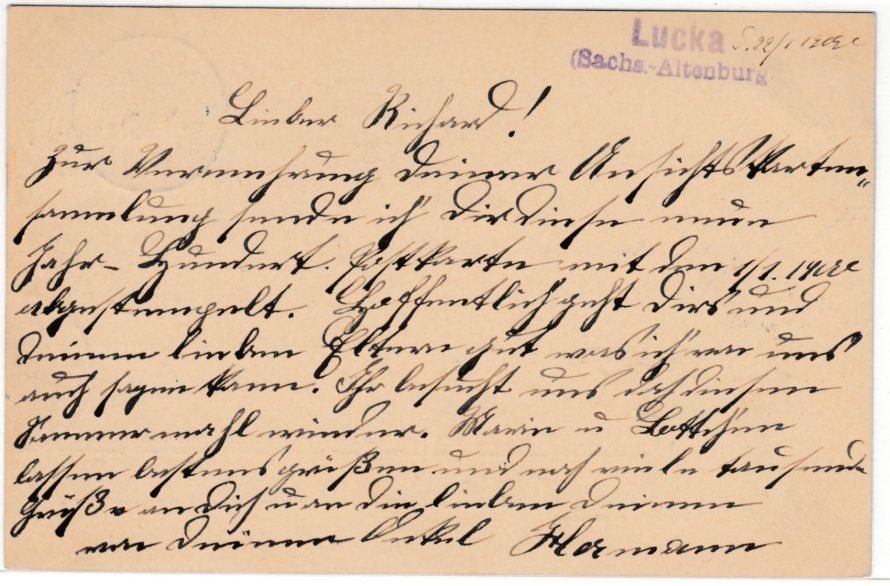 Lucka
(Sachs.-Altenburg)
Lieber Richard!
Zur Vermehrung deiner Ansichtskarten-
sammlung sende ich Dir diese neue
Jahr-Hundert. Postkarte mit dem 1/1. 1900
abgestempelt. Hoffentlich geht Dir's und
deinen lieben Eltern gut was ich von uns
auch sagen kann. Ihr besucht uns doch diesen
Sommer mahl wieder. Marie u Lottchen
lassen bestens grüßen und noch viele tausende
Grüße an Dich u an die lieben Deinen
von deinem Onkel Hermann